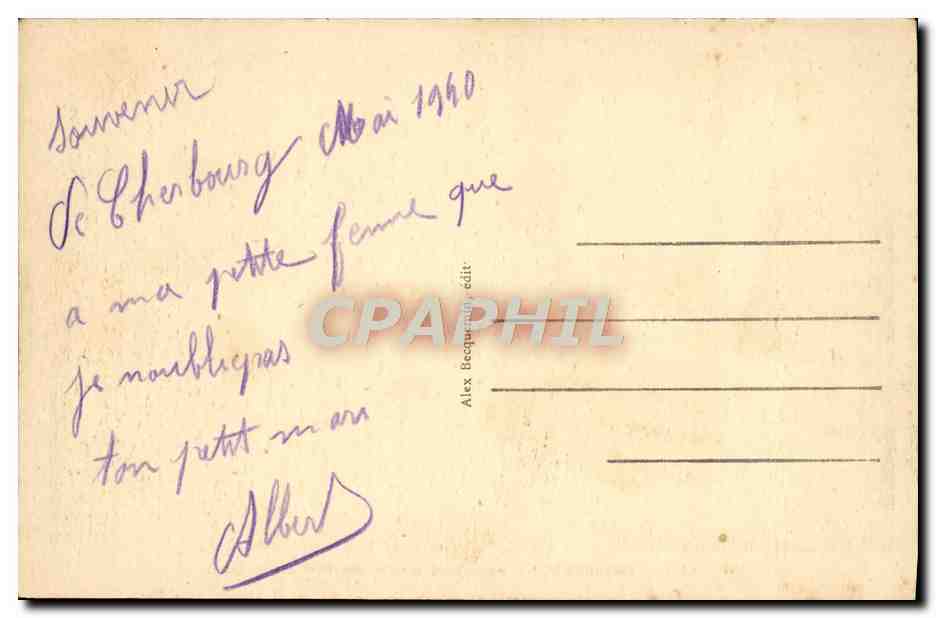 Souvenir
de Cherbourg Mai 1940
a ma petite femme que
je noublie pas
ton petit mari
Albert
Alex Becquemin, édit
CPAPHIL